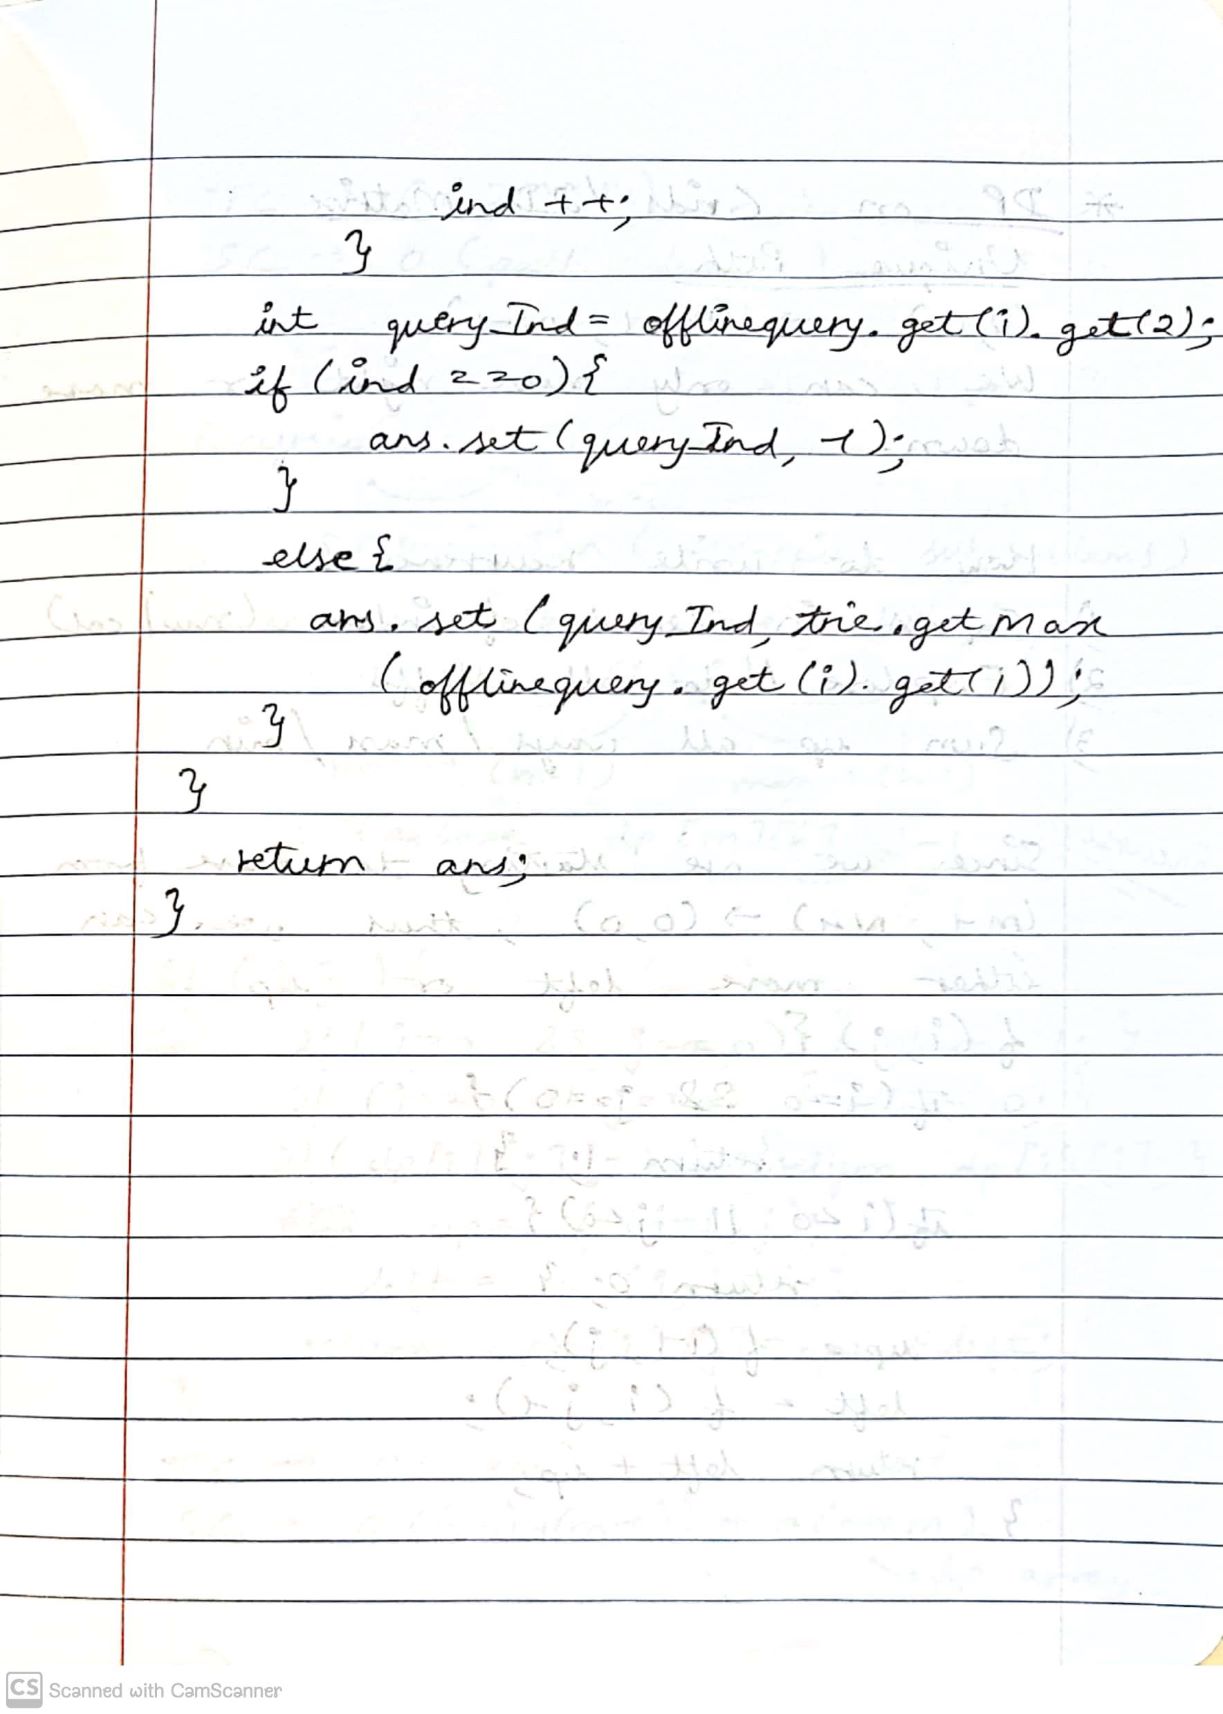 ind ++;
}
int query_Ind = offlinequery.get(i).get(2);
if (ind ==0){
ans.set(query_Ind, -1);
}
else {
ans.set (query_Ind, trie.getMax
(offlinequery.get(i).get(1));
}
}
return ans;
}
CS Scanned with CamScanner